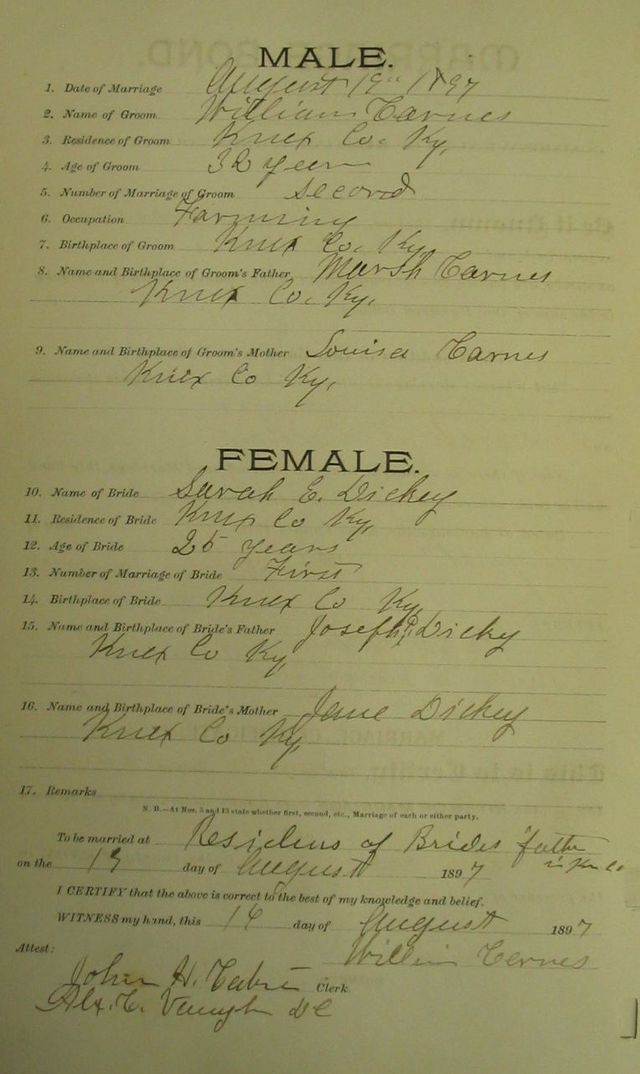 MALE.
1. Date of Marriage August 19th 1897
2. Name of Groom William Carnes
3. Residence of Groom Knox Co. Ky,
4. Age of Groom 32 years
5. Number of Marriage of Groom second
6. Occupation Farming
7. Birthplace of Groom Knox Co. Ky
8. Name and Birthplace of Groom's Father Marsh Carnes
Knox Co. Ky.
9. Name and Birthplace of Groom's Mother Louisa Carnes
Knox Co Ky,
FEMALE.
10. Name of Bride Sarah E. Dickey
11. Residence of Bride Knox Co Ky,
12. Age of Bride 25 years
13. Number of Marriage of Bride First
14. Birthplace of Bride Knox Co Ky,
15. Name and Birthplace of Bride's Father Joseph Dickey
Knox Co Ky
16. Name and Birthplace of Bride's Mother Jane Dickey
Knox Co Ky,
17. Remarks
N. B.—At Nos. 5 and 13 state whether first, second, etc., Marriage of each or either party.
To be married at Residens of Brides father
in Knx Co
on the 19 day of August 1897
I CERTIFY that the above is correct to the best of my knowledge and belief.
WITNESS my hand, this 16 day of August 1897
William Carnes
Attest:
John H. Clerk.
Alx. DC